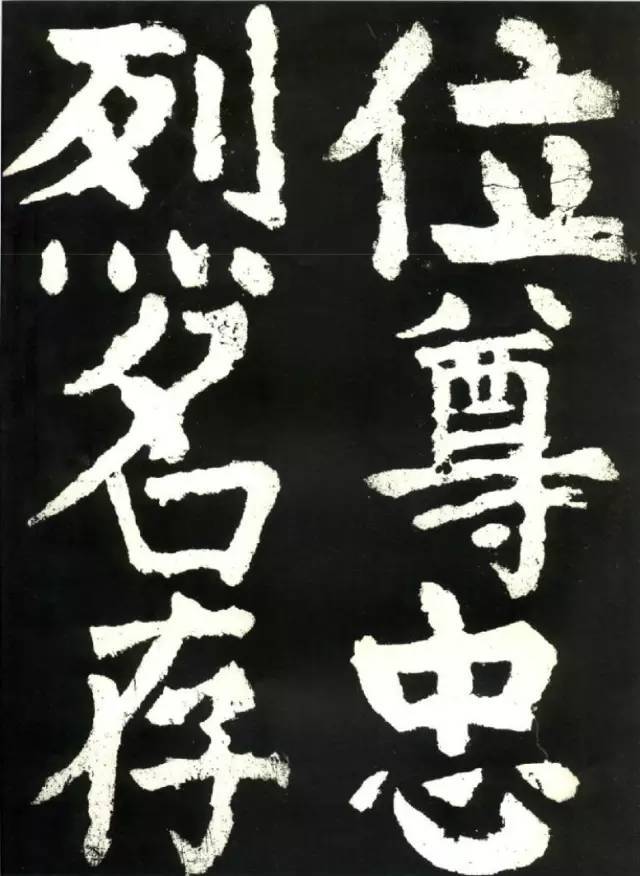 位尊忠
烈名存